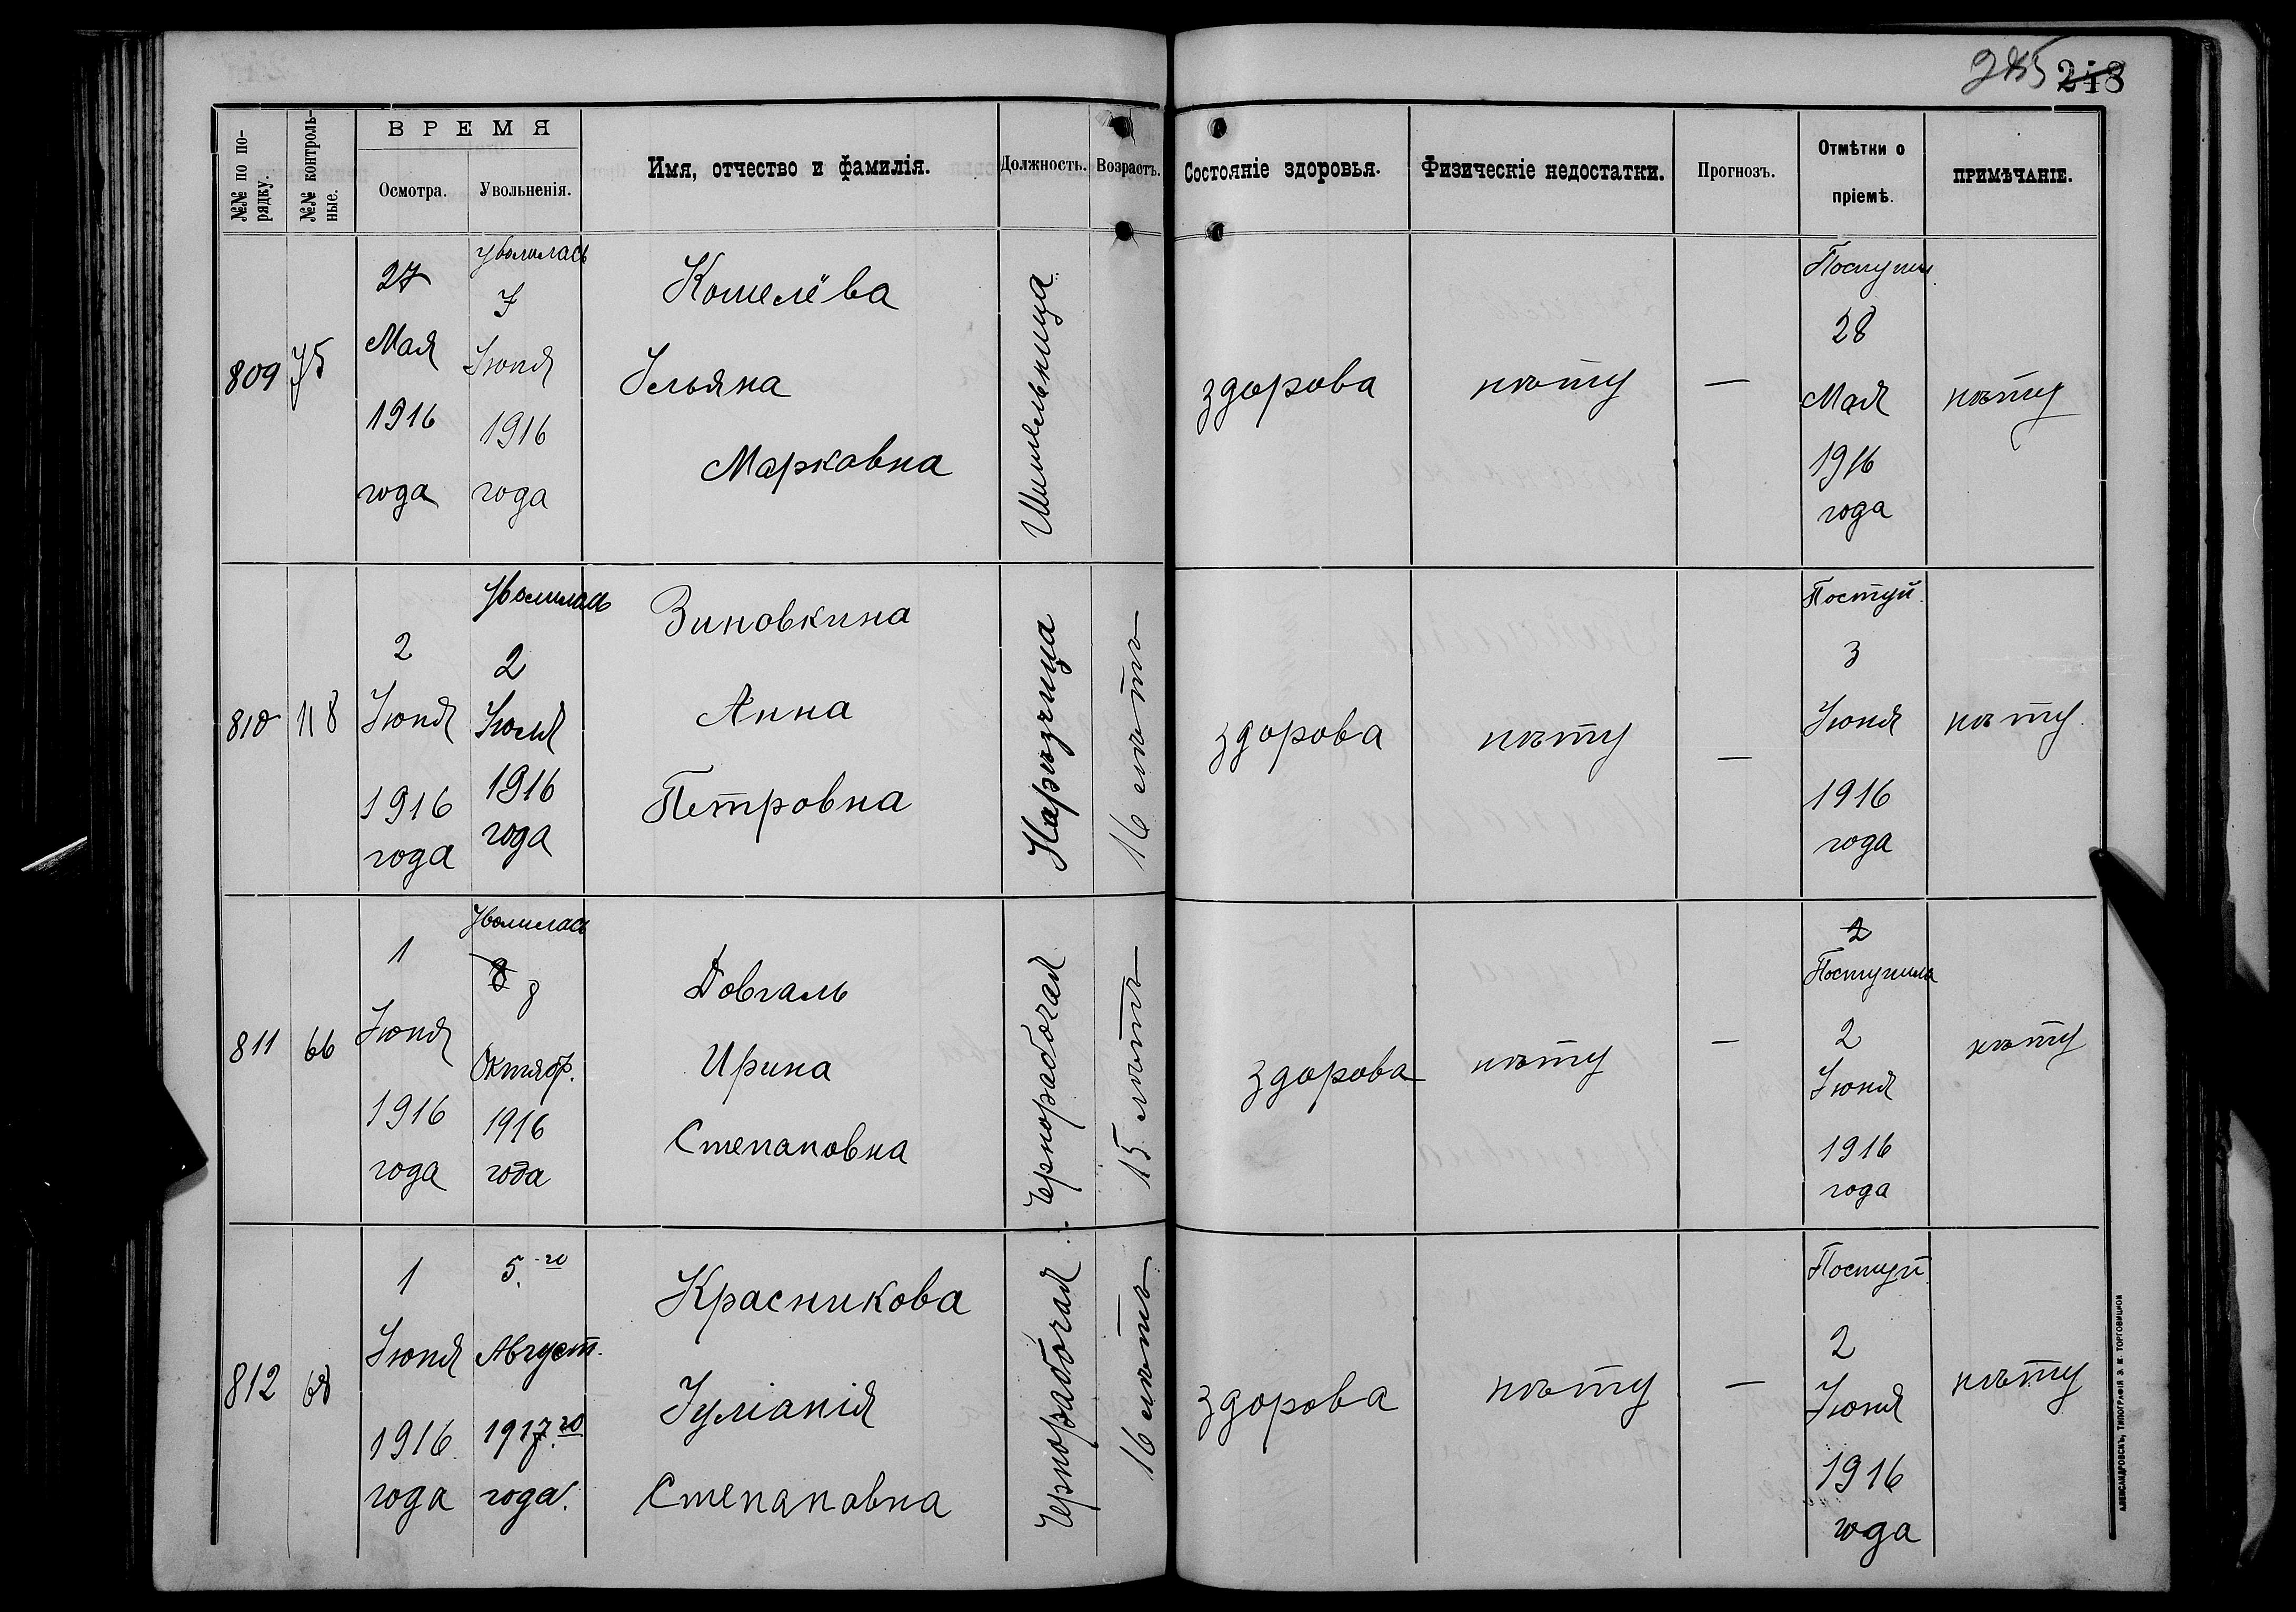 245 248
№№ по по-
рядку.
№№ контроль-
ные.
ВРЕМЯ
Осмотра.
Увольненія.
Имя, отчество и фамилія.
Должность.
Возрастъ.
Состояніе здоровья.
Физическіе недостатки.
Прогнозъ.
Отмѣтки о
пріемѣ.
ПРИМѢЧАНІЕ.
809
75
27
Мая
1916
года
Уволилась
7
Іюня
1916
года
Кошелёва
Ульяна
Марковна
Шпилельница
здорова
нѣту
—
Поступи
28
Мая
1916
года
нѣту
810
118
2
Іюня
1916
года
Уволилась
2
Іюля
1916
года
Зиновкина
Анна
Петровна
Нарѣзчица
16 лѣтъ
здорова
нѣту
—
Поступ.
3
Іюня
1916
года
нѣту.
811
66
1
Іюня
1916
года
Уволилась
8 8
Октябр.
1916
года
Довгаль
Ирина
Степановна
Чернорабочая
15 лѣтъ
здорова
нѣту
—
2
Поступила
2
Іюня
1916
года
нѣту
812
68
1
Іюня
1916
года
5.го
Август.
1917.го
года.
Красникова
Іуліанія
Степановна
Чернорабочая
16 лѣтъ
здорова
нѣту
—
Поступ
2
Іюня
1916
года
нѣту
АЛЕКСАНДРОВСКЪ, ТИПОГРАФІЯ З. М. ТОРГОВИЦКОЙ